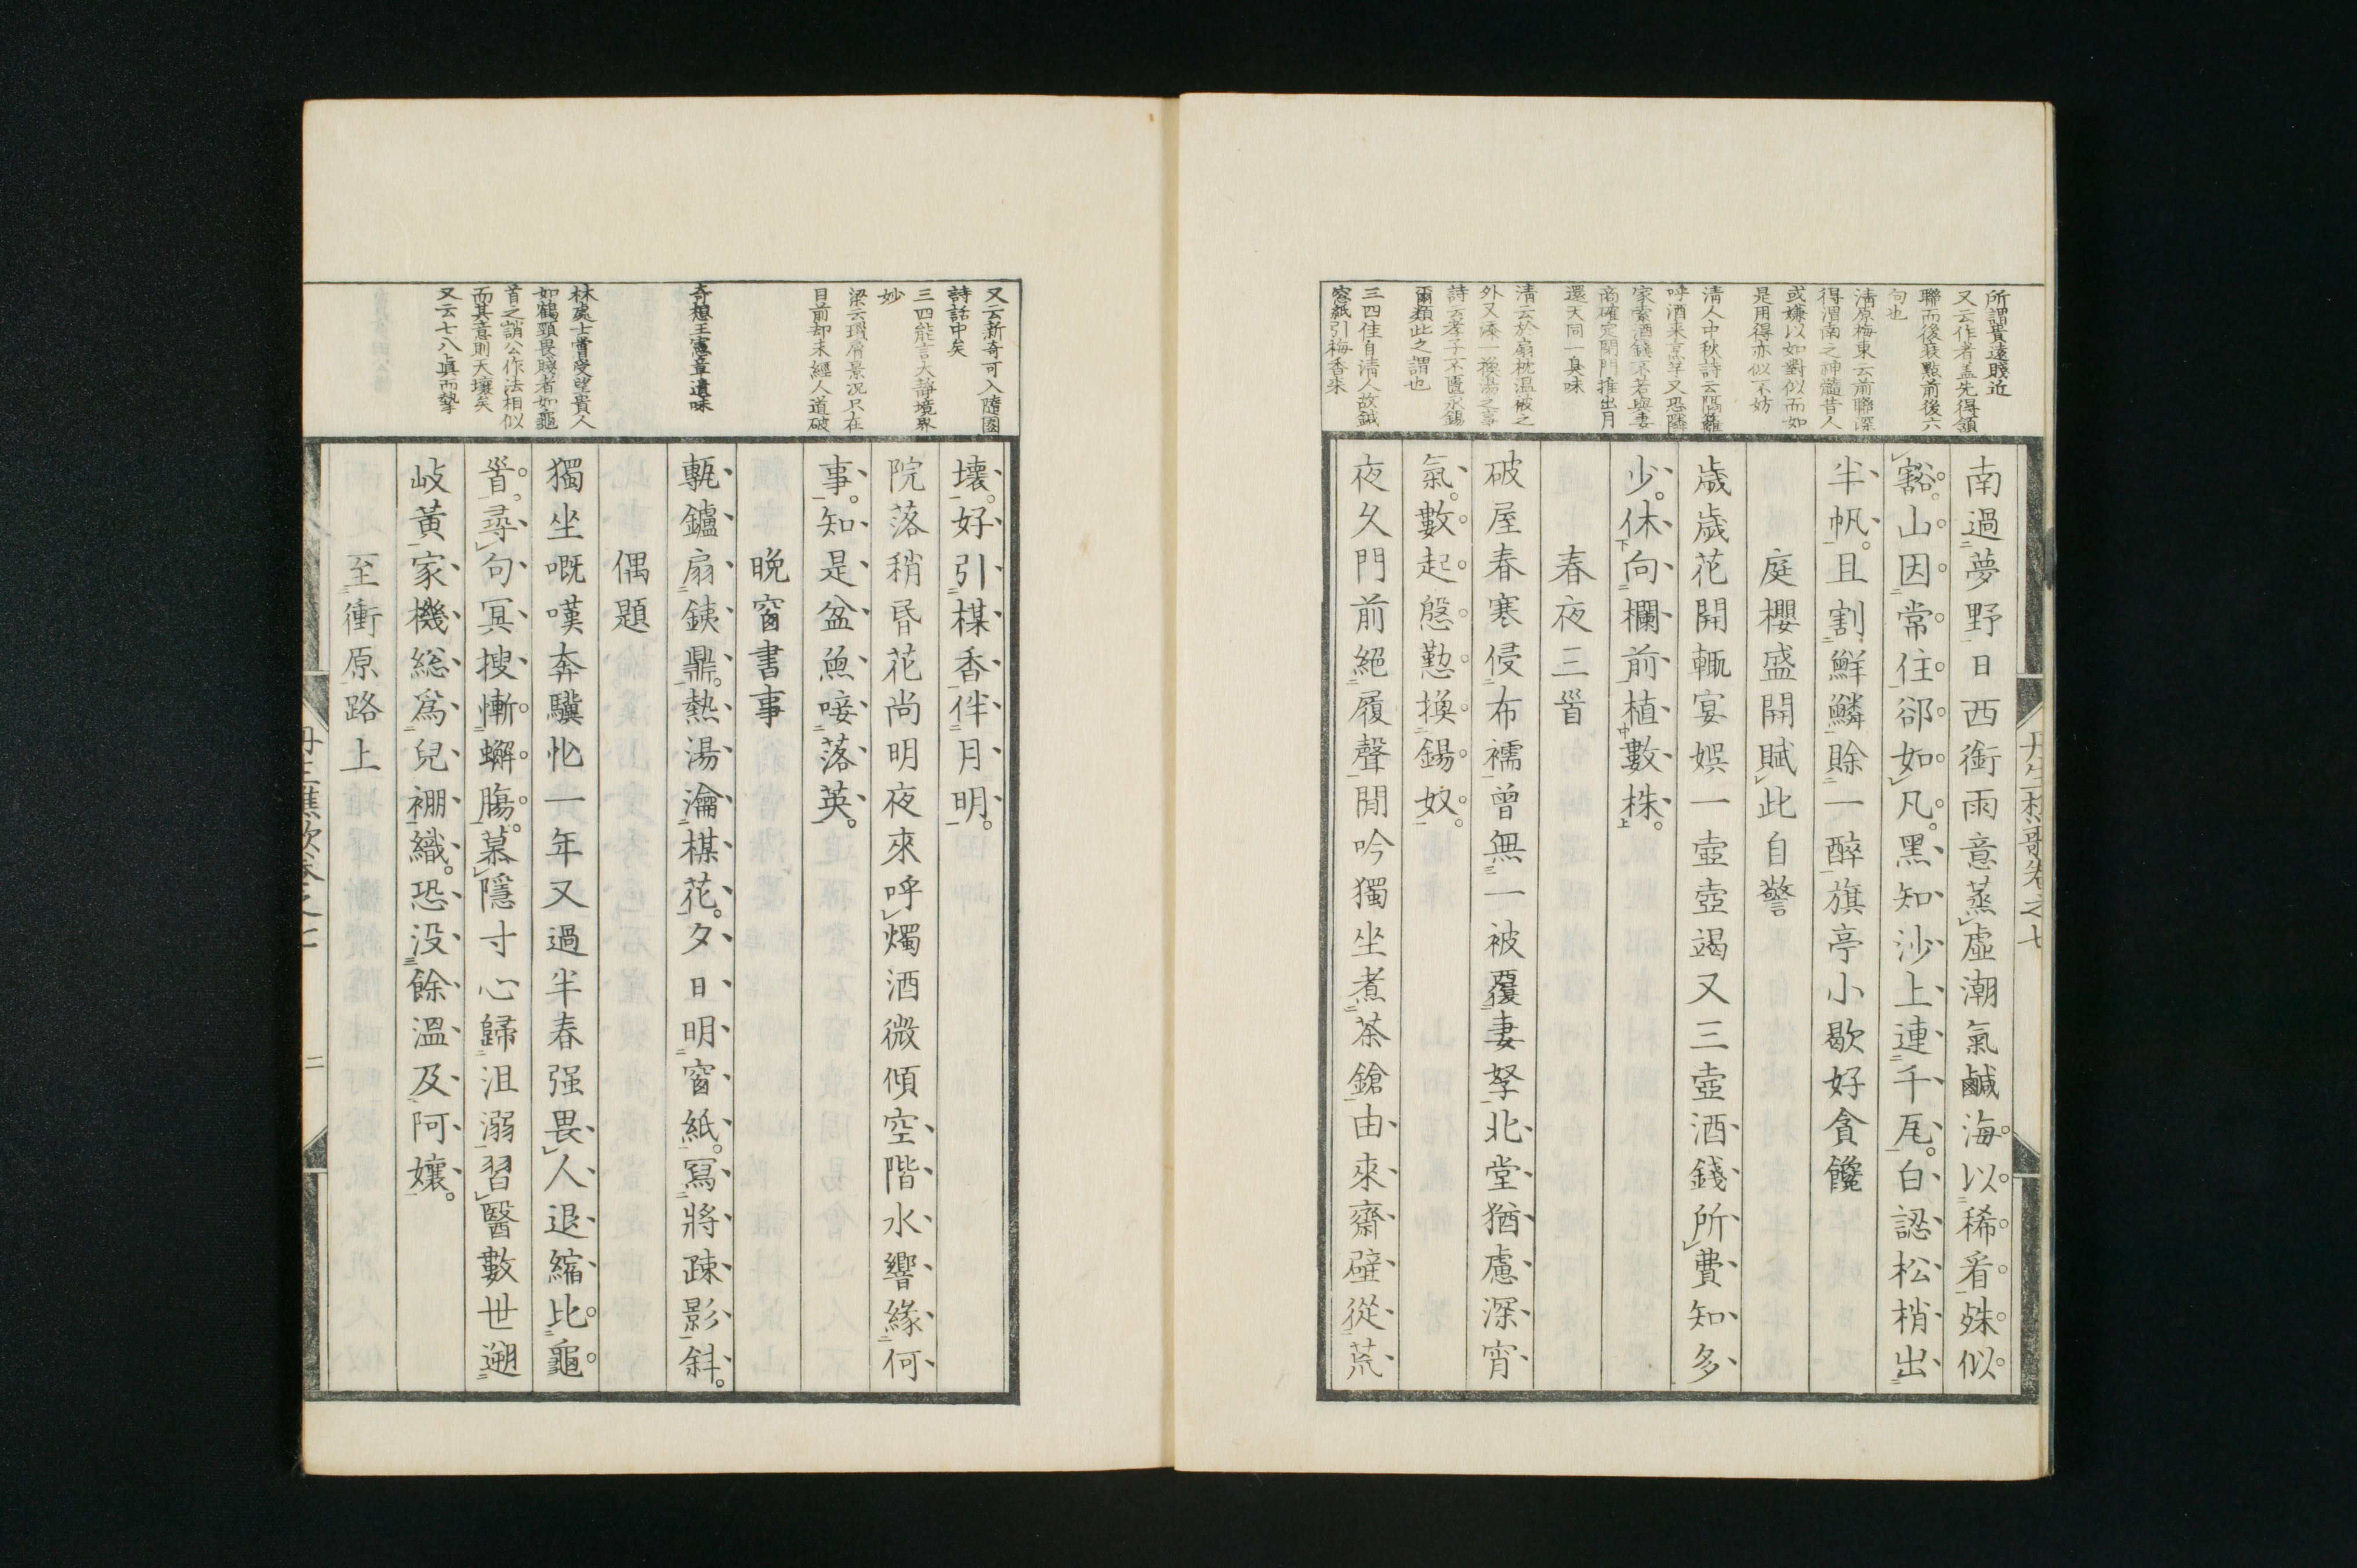 所謂貴遠賤近
又云作者盖先得領
聯而後裝點前後六
句也
淸原梅東云前聯深
得渭南之神髓昔人
或嫌以如對似而如
是用得亦似不妨
淸人中秋詩云隔籬
呼酒来烹芋又恐隣
家索酒錢不若與妻
商確定閉門推出月
還天同一臭味
淸云於扇枕温被之
外又添一換湯之事
詩云孝子不匱永錫
爾類此之謂也
三四佳自淸人故鐡
窓紙引梅香來
南過夢野日西衘雨意蒸虛潮氣鹹海以稀看殊似
豁山因常住郤如凡黑知沙上連千瓦白認松梢出
半帆且割鮮鱗賖一醉旗亭小歇好貪饞
庭櫻盛開賦此自警
歲歲花開輙宴娯一壺壺竭又三壺酒錢所費知多
少休向欄前植數株
春夜三首
破屋春寒侵布襦曾無一被覆妻孥北堂猶慮深宵
氣數起慇懃換錫奴
夜久門前絕履聲閒吟獨坐煮茶鎗由來齋壁從荒
丹生樵歌卷之七
又云新奇可入隨園
詩話中矣
三四能言大靜境界
妙
梁云瑣屑景况只在
目前却未經人道破
奇想王憲章遺味
林處士嘗受望貴人
如鶴頸畏賤者如龜
首之誚公作法相似
而其意則天壤矣
又云七八眞而摯
壞好引楳香伴月明
院落稍昏花尚明夜來呼燭酒微傾空階水響緣何
事知是盆魚唼落英
晚窗書事
甎鑪扇銕鼎熱湯瀹楳花夕日明窗紙寫將疎影斜
偶題
獨坐嘅嘆奔驥忙一年又過半春强畏人退縮比龜
首尋句冥搜慚蠏膓慕隱寸心歸沮溺習醫數世遡
岐黃家機総爲兒裯織恐没餘溫及阿孃
至衝原路上
丹生樵歌卷之七
二